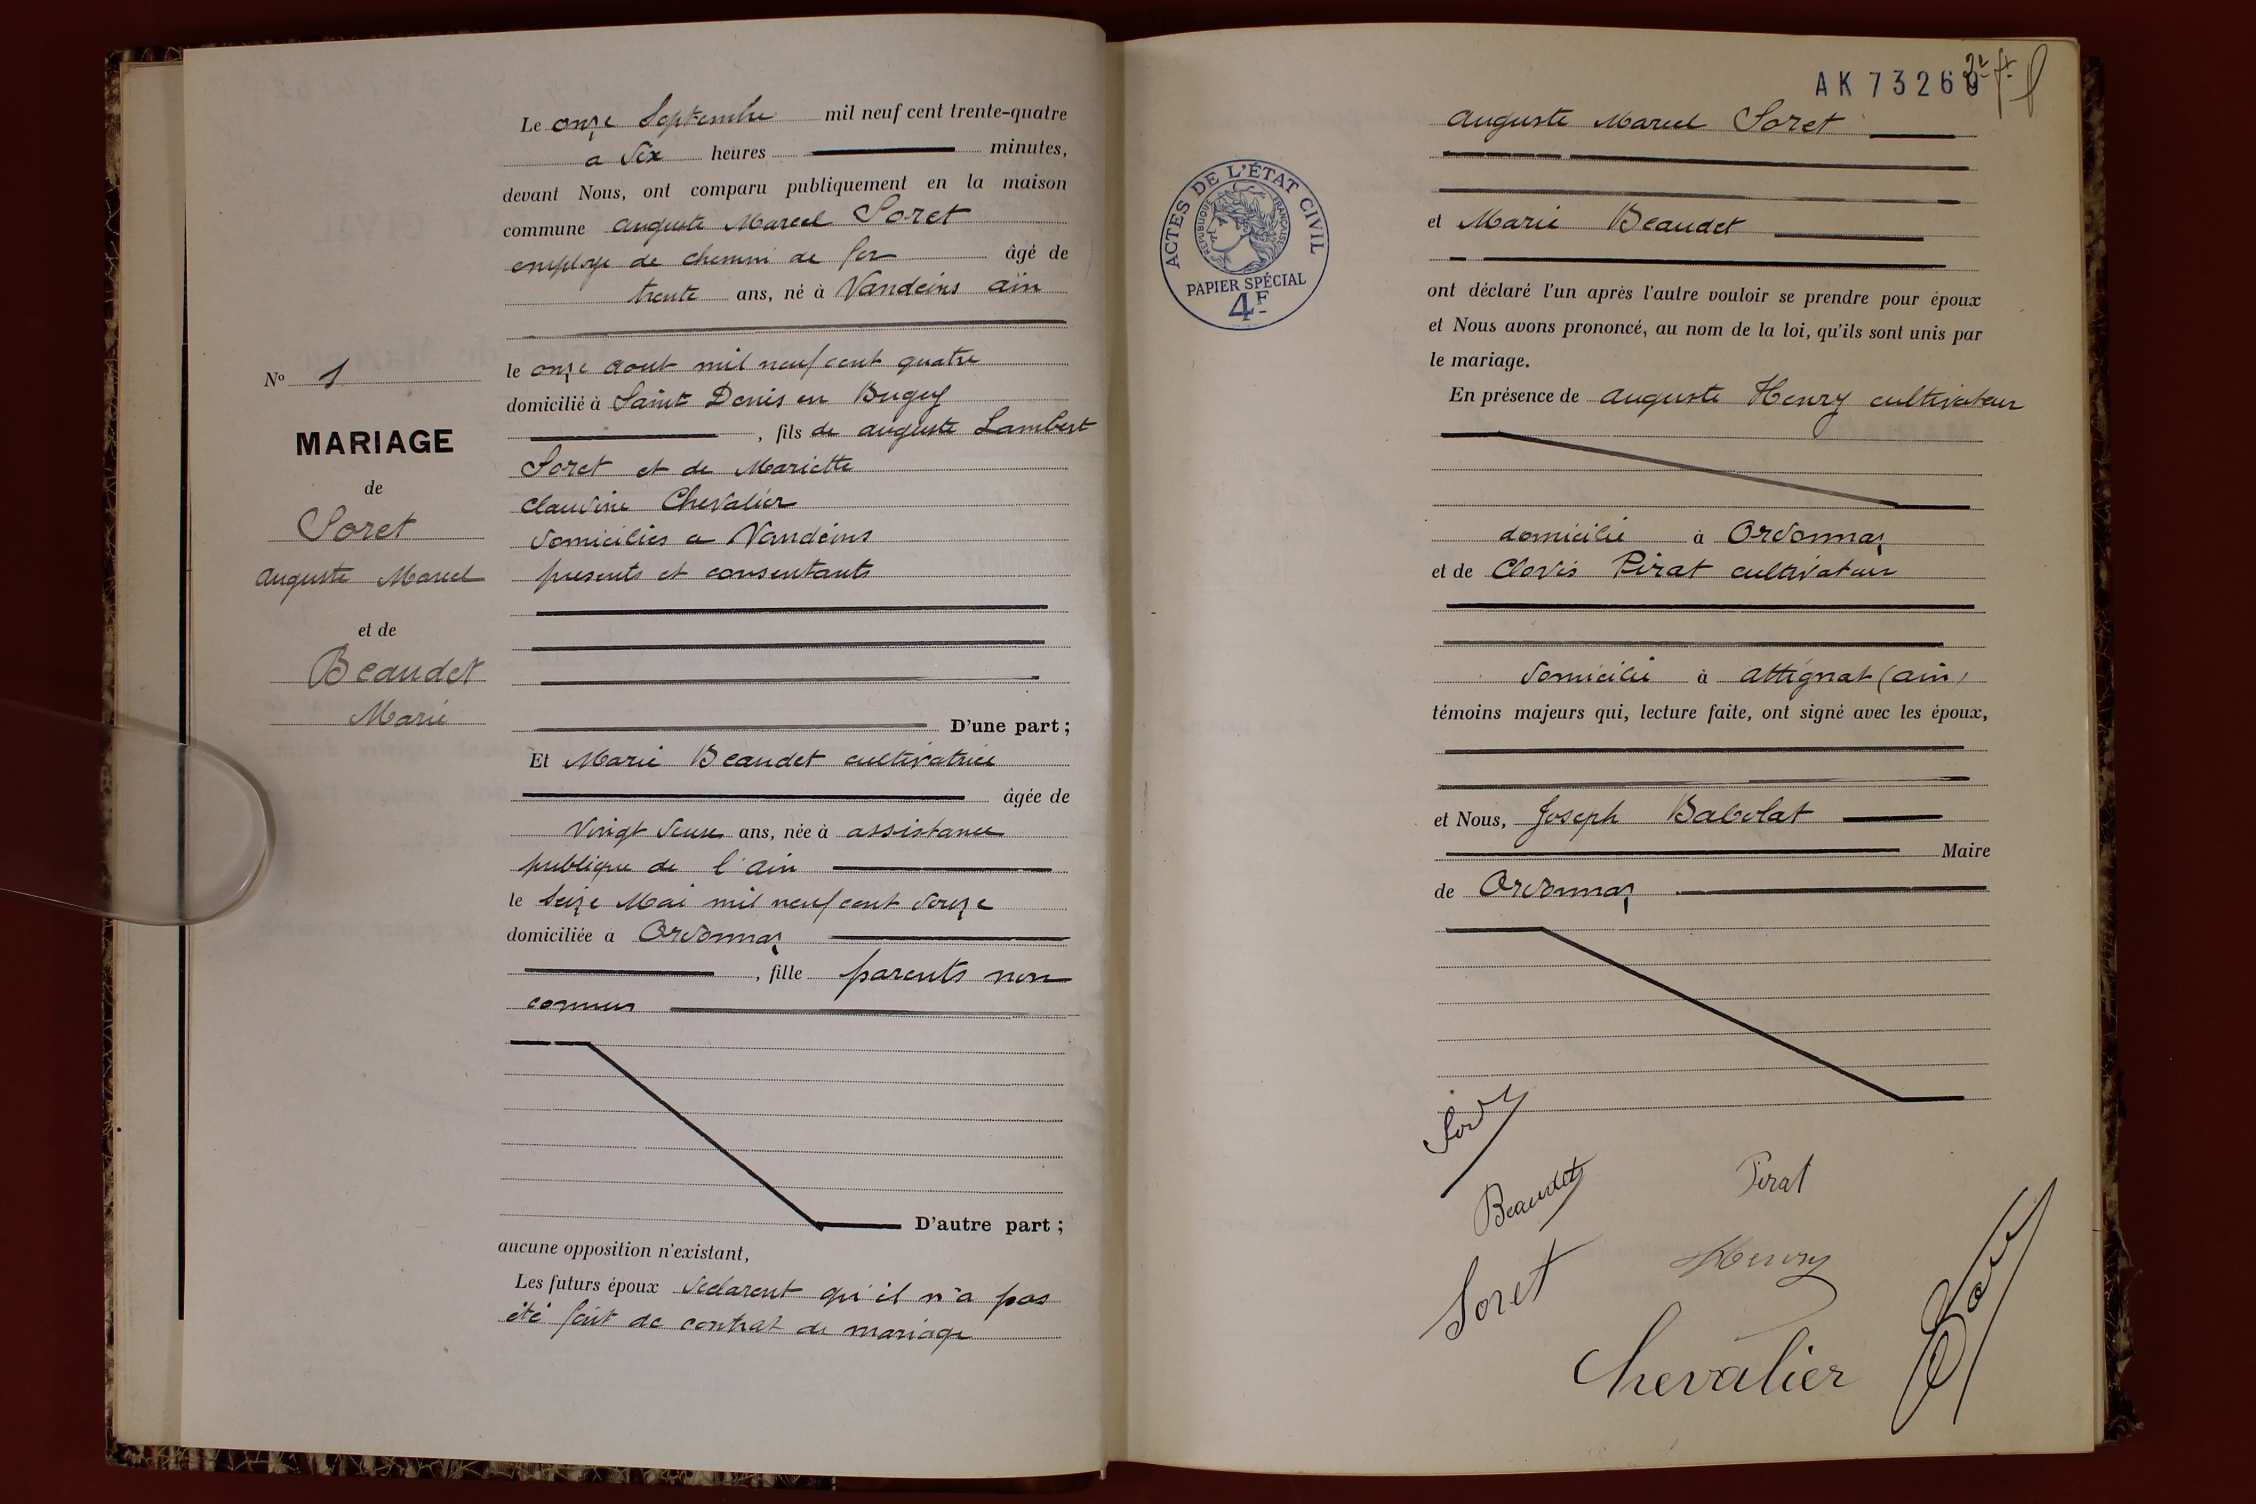 Le onze Septembre mil neuf cent trente-quatre
a six heures minutes,
devant Nous, ont comparu publiquement en la maison
commune auguste Marcel Soret
employe de chemin de fer âgé de
trente ans, né à Vandeins ain
le onze aout mil neuf cent quatre
domicilié à Saint Denis en Bugey
, fils de auguste Lambert
Soret et de Mariette
claudine Chevalier
domicilies a Vandeins
presents et consentants
D'une part ;
Nº 1
MARIAGE
de
Soret
auguste Marcel
et de
Beaudet
Marie
Et Marie Beaudet cultivatrice
âgée de
Vingt deux ans, née à assistance
publique de l'ain
le seize Mai mil neuf cent douze
domiciliée a Ordonnaz
, fille parents non
connus
D'autre part ;
aucune opposition n'existant,
Les futurs époux declarent qu'il n'a pas
été fait de contrat de mariage
AK 73269
ACTES DE L'ÉTAT CIVIL
RÉPUBLIQUE FRANÇAISE
PAPIER SPÉCIAL
4F
auguste Marcel Soret
et Marie Beaudet
ont déclaré l'un après l'autre vouloir se prendre pour époux
et Nous avons prononcé, au nom de la loi, qu'ils sont unis par
le mariage.
En présence de auguste Henry cultivateur
domicilié à Ordonnaz
et de Clovis Pirat cultivateur
domicilié à attignat (ain)
témoins majeurs qui, lecture faite, ont signé avec les époux,
et Nous, Joseph Babolat
Maire
de Ordonnaz
Beaudet
Pirat
Soret
Henry
Chevalier